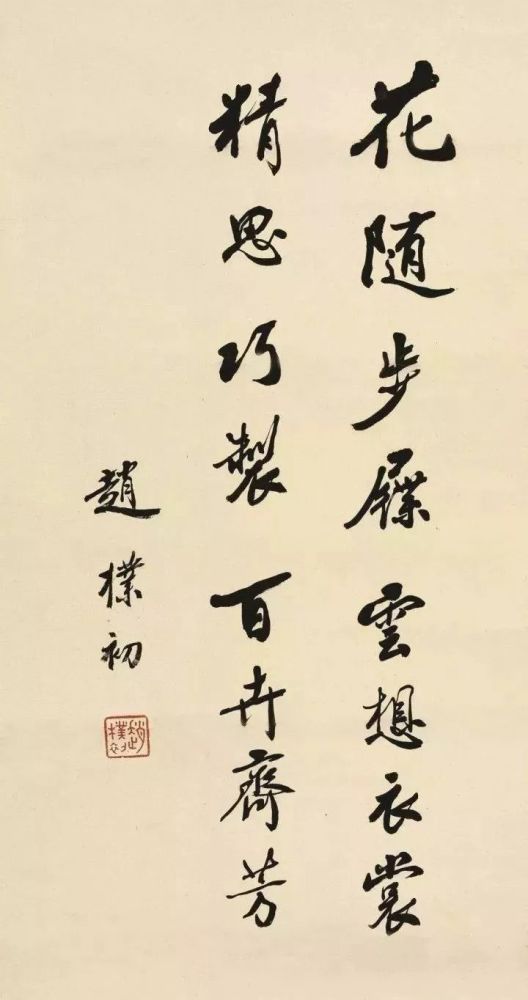 花随步屧雲想衣裳
精思巧製百卉齊芳
趙樸初